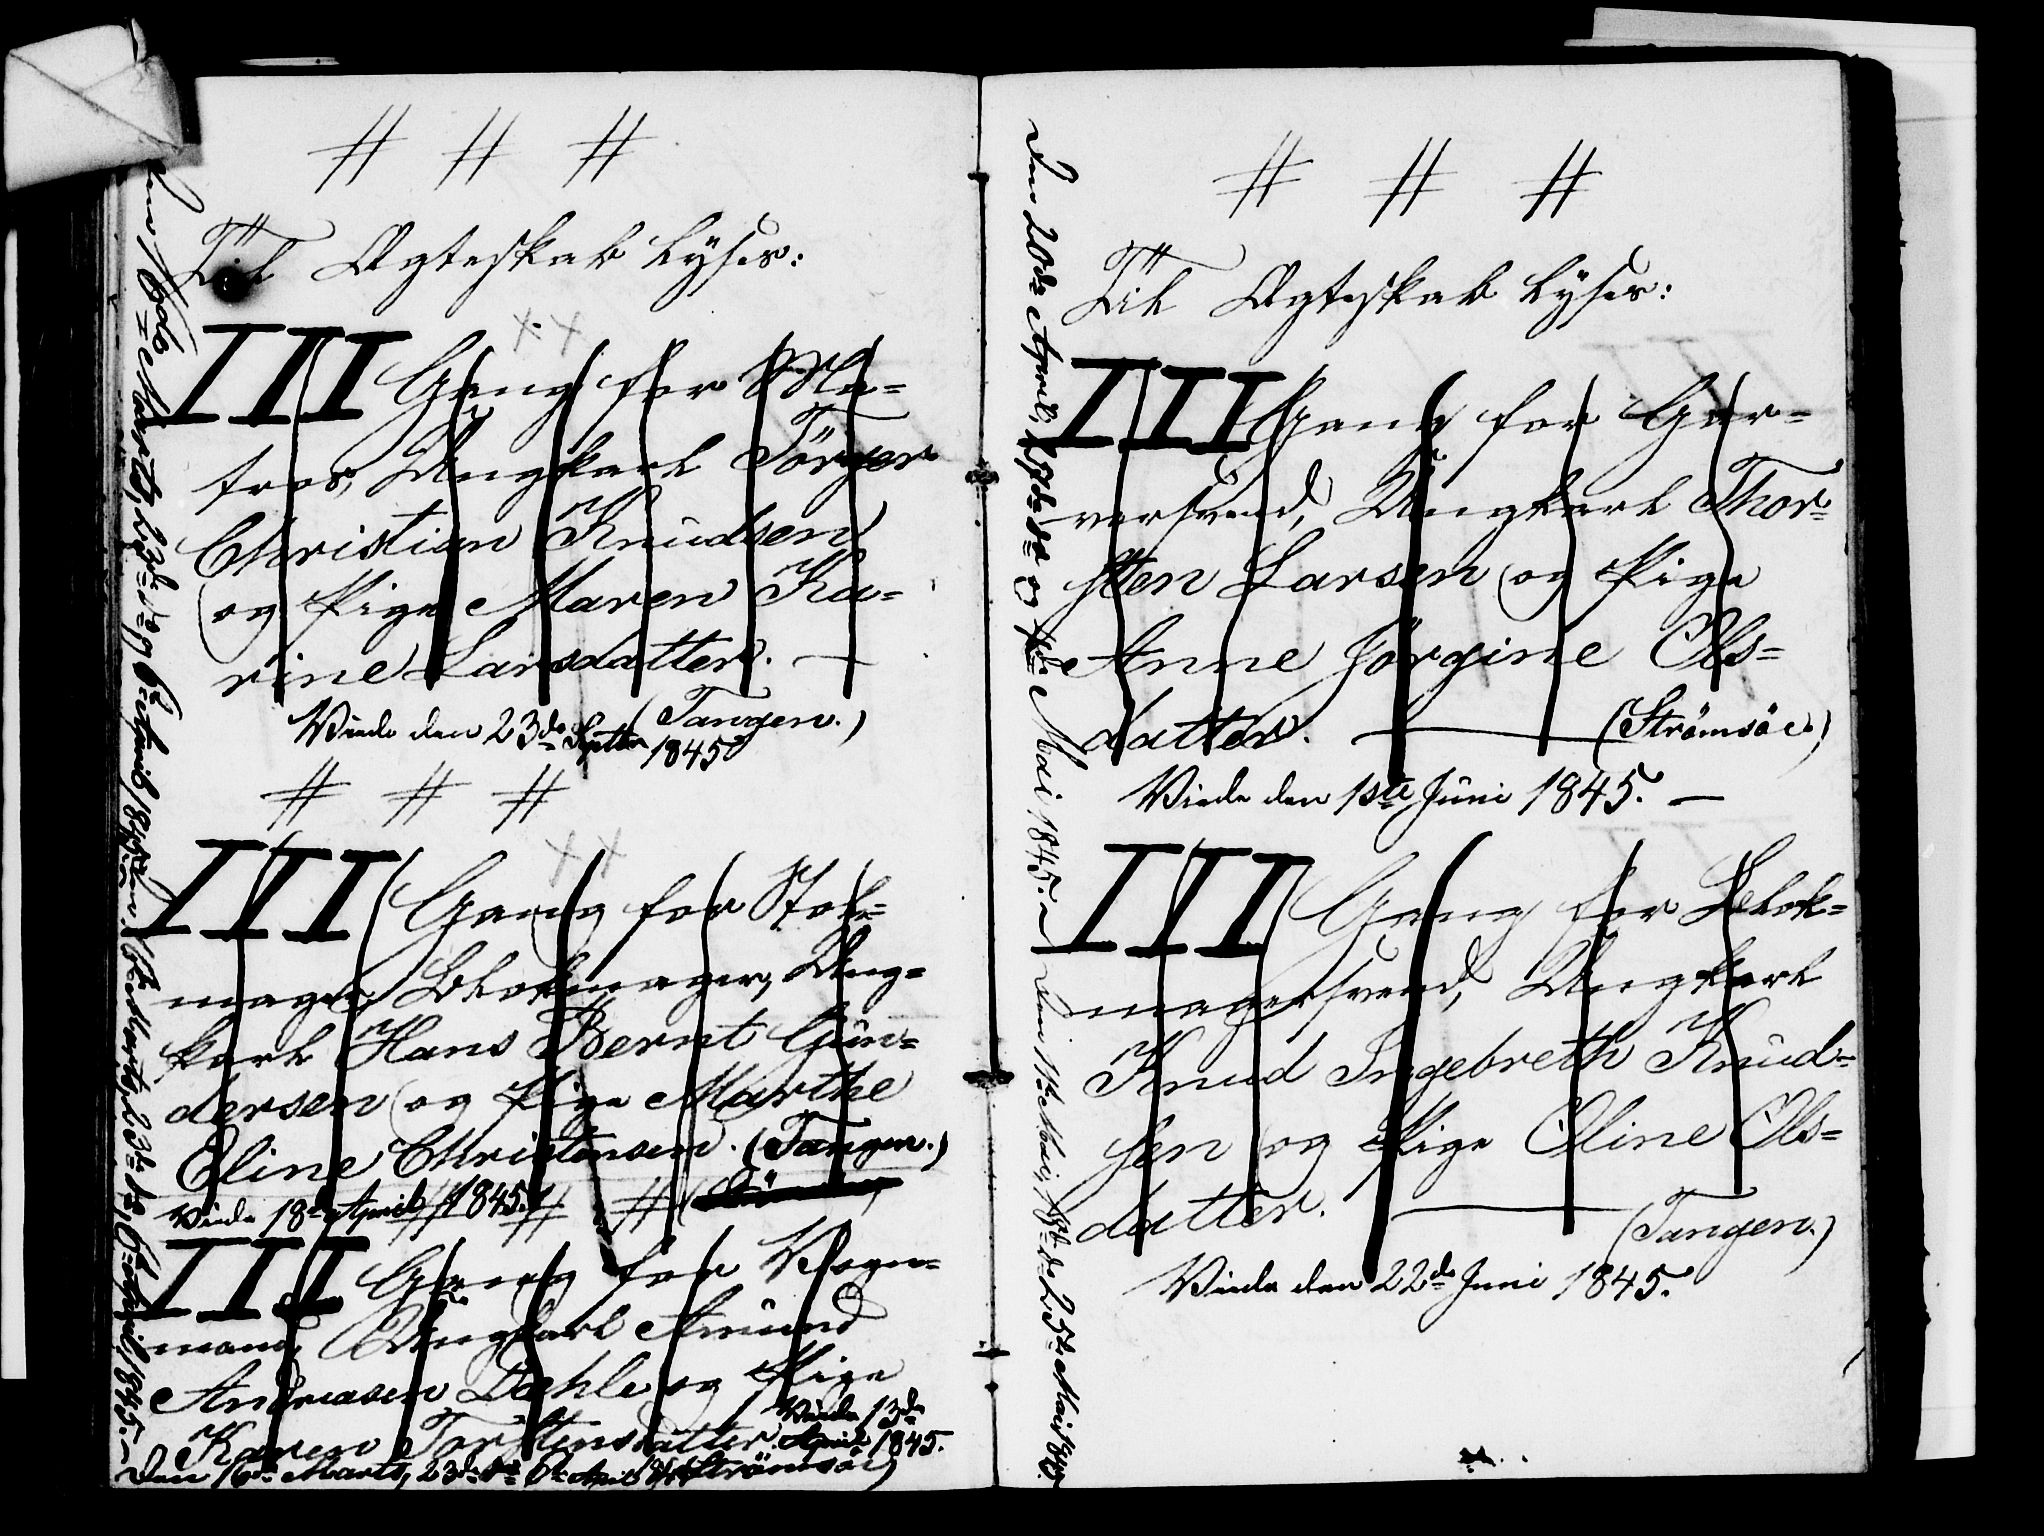 # # #
Til Ægteskab lyses:
III Gang for Ma=
tros, Ungkarl Törger
Christian Knudsen
og Pige Maren Ka=
rine Larsdatter. —
(Tangen.)
Viede den 23de Septbr 1845
# # #
III Gang for Stol=
mager, Blokmager, Ung=
karl Hans Bernt Gun=
dersen og Pige Marthe
Eline Christensen. (Tangen.)
Viede 18de April 1845.
# # #
III Gang for Vogn=
mand, Ungkarl Amund
Andreasen Dæhle og Pige
Karen Torstensdatter. Viede 13de
April 1845.
Den 16de Marts, 23de do 6te April 1845 (Strömsöe)
Den 16de Marts, 23de do og 6te April 1845.
Den 16de Marts, 23de do, 6te April 1845.
# # #
Til Ægteskab lyses:
III Gang for Gar=
versvend, Ungkarl Thor=
sten Larsen og Pige
Anne Jörgine Ols=
datter. — (Strömsöe.)
Viede den 1ste Juni 1845. —
III Gang for Blok=
magersvend, Ungkarl
Knud Ingebreth Knud=
sen og Pige Oline Ols=
datter. — (Tangen.)
Viede den 22de Juni 1845.
Den 20de April, 27de do og 4de Mai 1845.
Den 11te Mai, 18de do 25de Mai 1845.